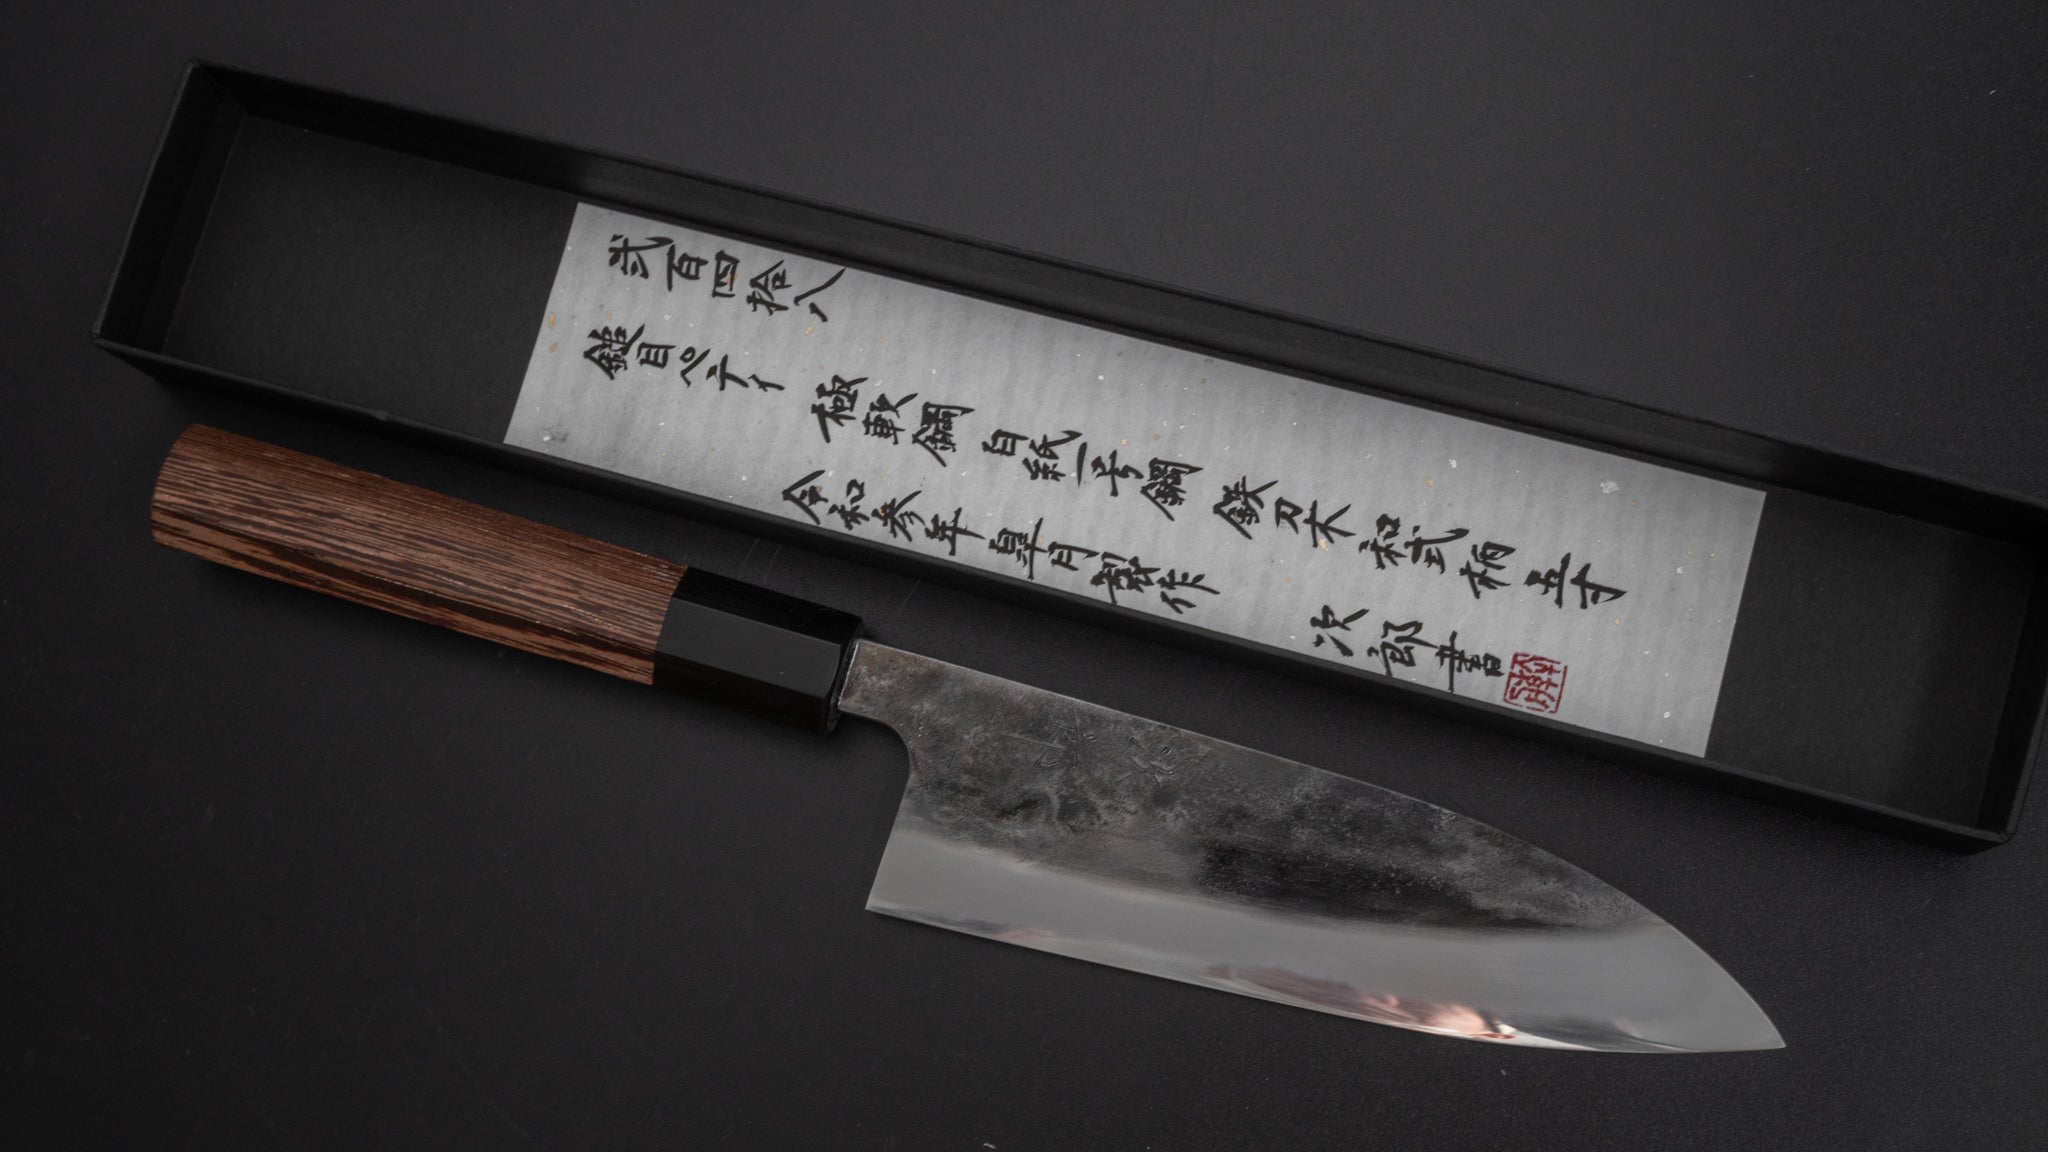 弐百四拾八
鎚目ペティ 極軟鋼 白紙一号鋼 鉄刀木 和式柄 五寸
令和参年 皐月製作 次郎 書